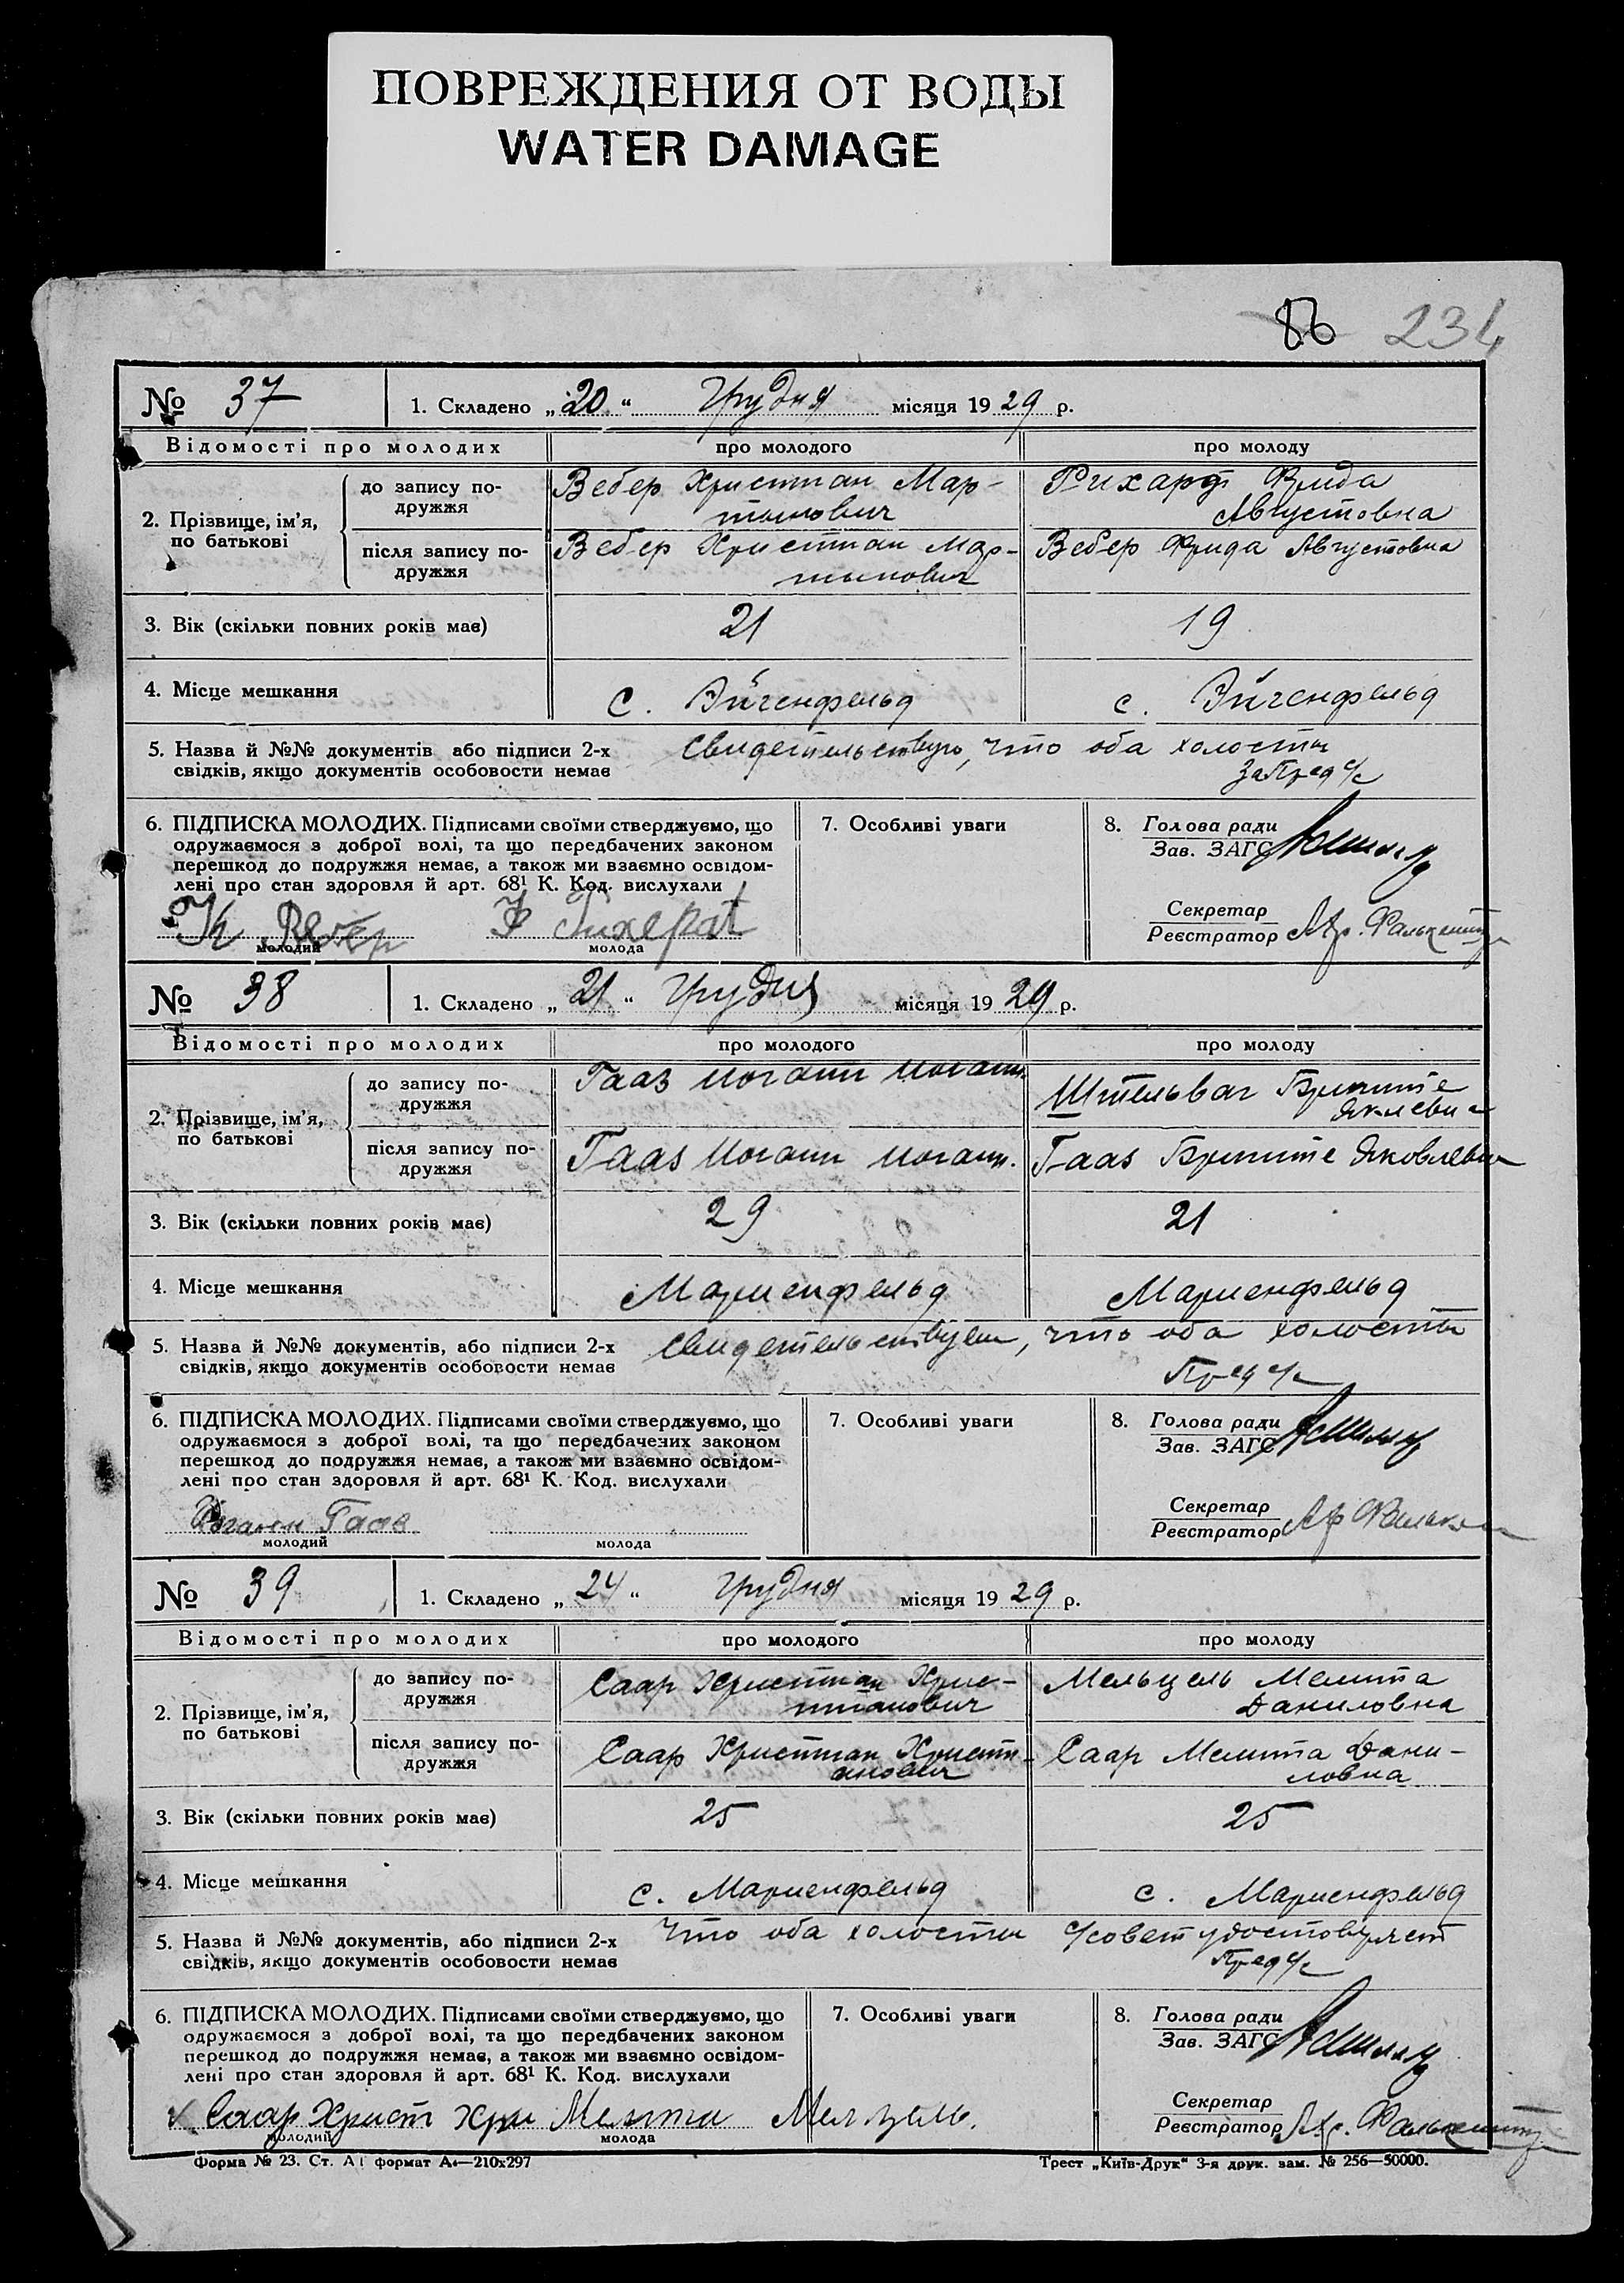 ПОВРЕЖДЕНИЯ ОТ ВОДЫ
WATER DAMAGE
86 234
№ 37 1. Складено „ 20 “ Грудня місяця 19 29 р.
Відомості про молодих про молодого про молоду
2. Прізвище, ім'я, по батькові
до запису подружжя
Вебер Христиан Мар-
тынович
Рихард Фрида
Августовна
після запису подружжя
Вебер Христиан Мар-
тынович
Вебер Фрида Августовна
3. Вік (скільки повних років має) 21 19
4. Місце мешкання с. Эйгенфельд с. Эйгенфельд
5. Назва й №№ документів або підписи 2-х
свідків, якщо документів особовости немає
Свидетельствую, что оба холосты
ЗаПред с/с
6. ПІДПИСКА МОЛОДИХ. Підписами своїми стверджуємо, що
одружаємося з доброї волі, та що передбачених законом
перешкод до подружжя немає, а також ми взаємно освідом-
лені про стан здоровля й арт. 68¹ К. Код. вислухали
молодий молода
7. Особливі уваги
8. Голова ради
Зав. ЗАГС
Секретар
Реєстратор
№ 38 1. Складено „ 21 “ Грудня місяця 19 29 р.
Відомості про молодих про молодого про молоду
2. Прізвище, ім'я, по батькові
до запису подружжя
Гааз Иоганн Иоганн.
Штельваг
після запису подружжя
Гааз Иоганн Иоганн.
Гааз Яковлевна
3. Вік (скільки повних років має) 29 21
4. Місце мешкання Мариенфельд Мариенфельд
5. Назва й №№ документів, або підписи 2-х
свідків, якщо документів особовости немає
Свидетельствуем, что оба холосты
Пред с/с
6. ПІДПИСКА МОЛОДИХ. Підписами своїми стверджуємо, що
одружаємося з доброї волі, та що передбачених законом
перешкод до подружжя немає, а також ми взаємно освідом-
лені про стан здоровля й арт. 68¹ К. Код. вислухали
Иоганн Гааз
молодий молода
7. Особливі уваги
8. Голова ради
Зав. ЗАГС
Секретар
Реєстратор
№ 39 1. Складено „ 24 “ Грудня місяця 19 29 р.
Відомості про молодих про молодого про молоду
2. Прізвище, ім'я, по батькові
до запису подружжя
Саар Христиан Хрис-
тианович
Мельцель Мелита
Даниловна
після запису подружжя
Саар Христиан Христи-
анович
Саар Мелита Дани-
ловна
3. Вік (скільки повних років має) 25 25
4. Місце мешкання с. Мариенфельд с. Мариенфельд
5. Назва й №№ документів, або підписи 2-х
свідків, якщо документів особовости немає
Что оба холосты с/совет удостоверяет
Пред с/с
6. ПІДПИСКА МОЛОДИХ. Підписами своїми стверджуємо, що
одружаємося з доброї волі, та що передбачених законом
перешкод до подружжя немає, а також ми взаємно освідом-
лені про стан здоровля й арт. 68¹ К. Код. вислухали
Саар Христ Хри Мелита Мелцель.
молодий молода
7. Особливі уваги
8. Голова ради
Зав. ЗАГС
Секретар
Реєстратор
Форма № 23. Ст. А1 формат А4—210х297
Трест „Київ-Друк“ 3-я друк. зам. № 256—50000.